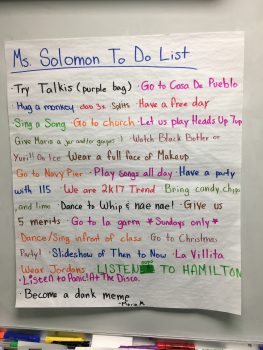 Ms. Solomon To Do List
· Try Talkis (purple bag) · Go to Casa De Pueblo
· Hug a monkey · dab 3x · Splits · Have a free day
Sing a Song · Go to church · Let us play Heads Up 7up
Give Mario a jar and/or · Watch Black Butler or
Yuri!! On Ice · Wear a full face of Makeup
· Go to Navy Pier · Play Songs all day · Have a party
with 115 · We are 2K17 Trend · Bring candy, chips
and lime · Dance to Whip & nae nae! · Give us
5 merits · Go to la garm *Sundays only*
· Dance/Sing infront of class · Go to Christmas
Party! · Slideshow of Then to Now · La Villita
Wear Jordans · LISTEN TO HAMILTON
· Listen to Panic! At The Disco.
· Become a dank meme.